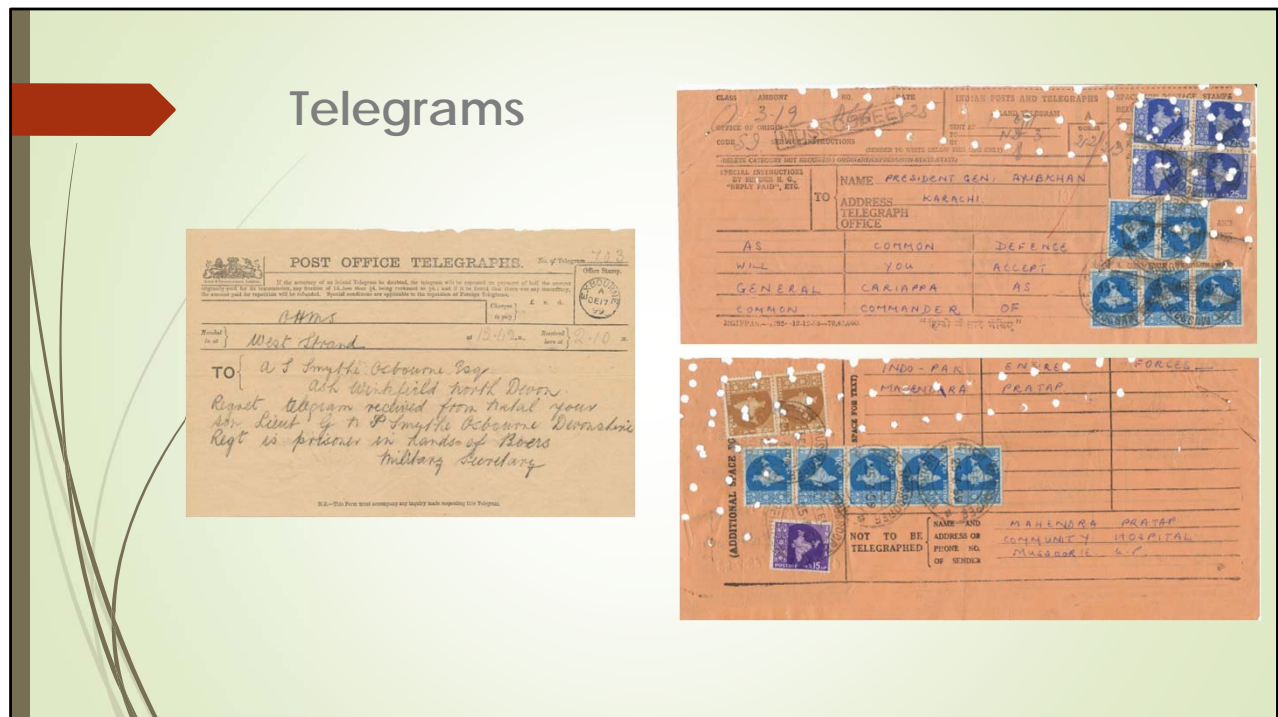 Telegrams
POST OFFICE TELEGRAPHS.
No. of Telegram 703
If the accuracy of an Inland Telegram be doubted, the telegram will be repeated on payment of half the amount
originally paid for its transmission, any fraction of 1d. less than ½d. being reckoned as ½d.; and if it be found that there was any inaccuracy,
the amount paid for repetition will be refunded. Special conditions are applicable to the repetition of Foreign Telegrams.
Office Stamp.
EXBOURNE
A
DE 17
99
Charges to pay
£ s. d.
OHMS
Handed in at
West Strand
at 12.42
Received here at
2.10
TO
A S Smythe Osbourne Esq
Ash Winkfield North Devon
Regret telegram received from Natal your
son Lieut G N P Smythe Osbourne Devonshire
Regt is prisoner in hands of Boers
Military Secretary
N.B.—This Form must accompany any inquiry made respecting this Telegram.
CLASS AMOUNT NO. DATE
INDIAN POSTS AND TELEGRAPHS
OFFICE OF ORIGIN
MUSSOOREE
SENT AT
TO
BY
CODE 59 SERVICE INSTRUCTIONS
(SENDER TO WRITE BELOW THIS LINE ONLY)
SPECIAL INSTRUCTIONS
"REPLY PAID", ETC.
TO
NAME PRESIDENT GEN. AYUBKHAN
ADDRESS KARACHI
TELEGRAPH
OFFICE
AS COMMON DEFENCE
WILL YOU ACCEPT
GENERAL CARIAPPA AS
COMMON COMMANDER OF
INDO-PAK ENTIRE FORCES
MAHENDRA PRATAP
(ADDITIONAL SPACE
SPACE FOR TEXT)
POSTAGE 15
NOT TO BE
TELEGRAPHED
NAME AND
ADDRESS OR
PHONE NO.
OF SENDER
MAHENDRA PRATAP
COMMUNITY HOSPITAL
MUSSOORIE U.P.